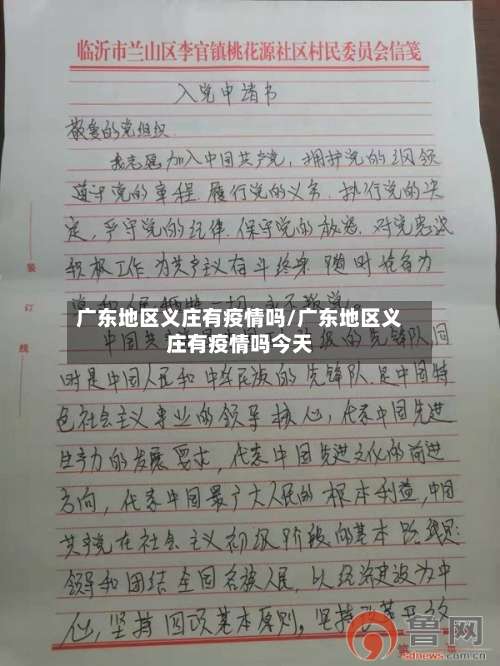 临沂市兰山区李官镇桃花源社区村民委员会信笺
入党申请书
敬爱的党组织
我志愿加入中国共产党,拥护党的纲领
遵守党的章程.履行党的义务.执行党的决
定,严守党的纪律.保守党的秘密.对党忠诚
积极工作.为共产主义奋斗终身.随时准备为
广东地区义庄有疫情吗/广东地区义
庄有疫情吗今天
中国共 的先锋队,同
时是中国人民和中华民族的先锋队.是中国特
色社会主义事业的领导核心,代表中国先进
生产力的发展要求,代表中国先进文化的前进
方向,代表中国最广大人民的根本利益,中国
共产党在社会主义初级阶段的基本路线是:
领导和团结全国各族人民,以经济建设为中
心,坚持四项基本原则,坚持改革开放
装
订
线
鲁网
sdnews.com.cn